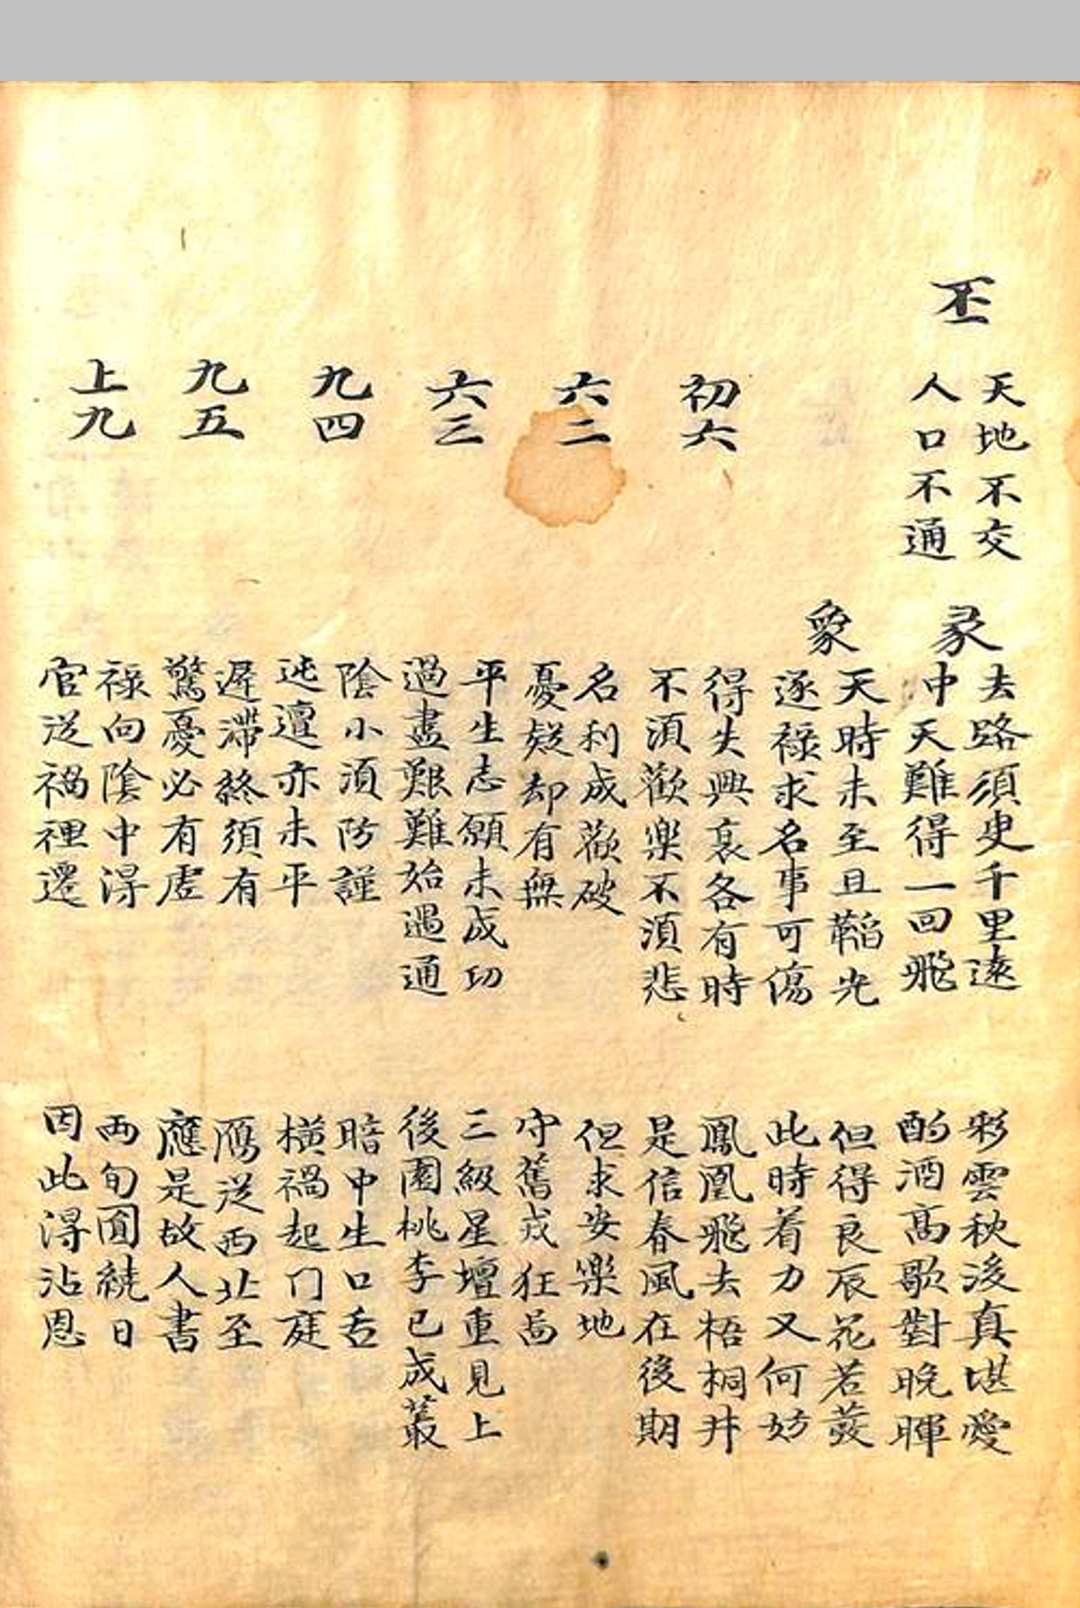 丕
天地不交
人口不通
彖
去路須臾千里遠
彩雲秋後真堪愛
中天難得一回飛
酌酒高歌對晚暉
象
天時未至且韜光
但得良辰花若發
逐祿求名事可傷
此時着力又何妨
初六
得失興衰各有時
鳳凰飛去梧桐井
不須歡樂不須悲
是信春風在後期
六二
名利成歡破
但求安樂地
憂疑却有無
守舊戎狂啚
六三
平生志願未成功
三級星壇重見上
過盡艱難始遇通
後園桃李已成叢
九四
陰小須防謹
暗中生口舌
迍邅亦未平
橫禍起門庭
九五
遲滯終須有
鴈送西北至
驚憂必有虛
應是故人書
上九
祿向陰中得
兩旬圓繞日
官送禍裡遷
因此得沾恩